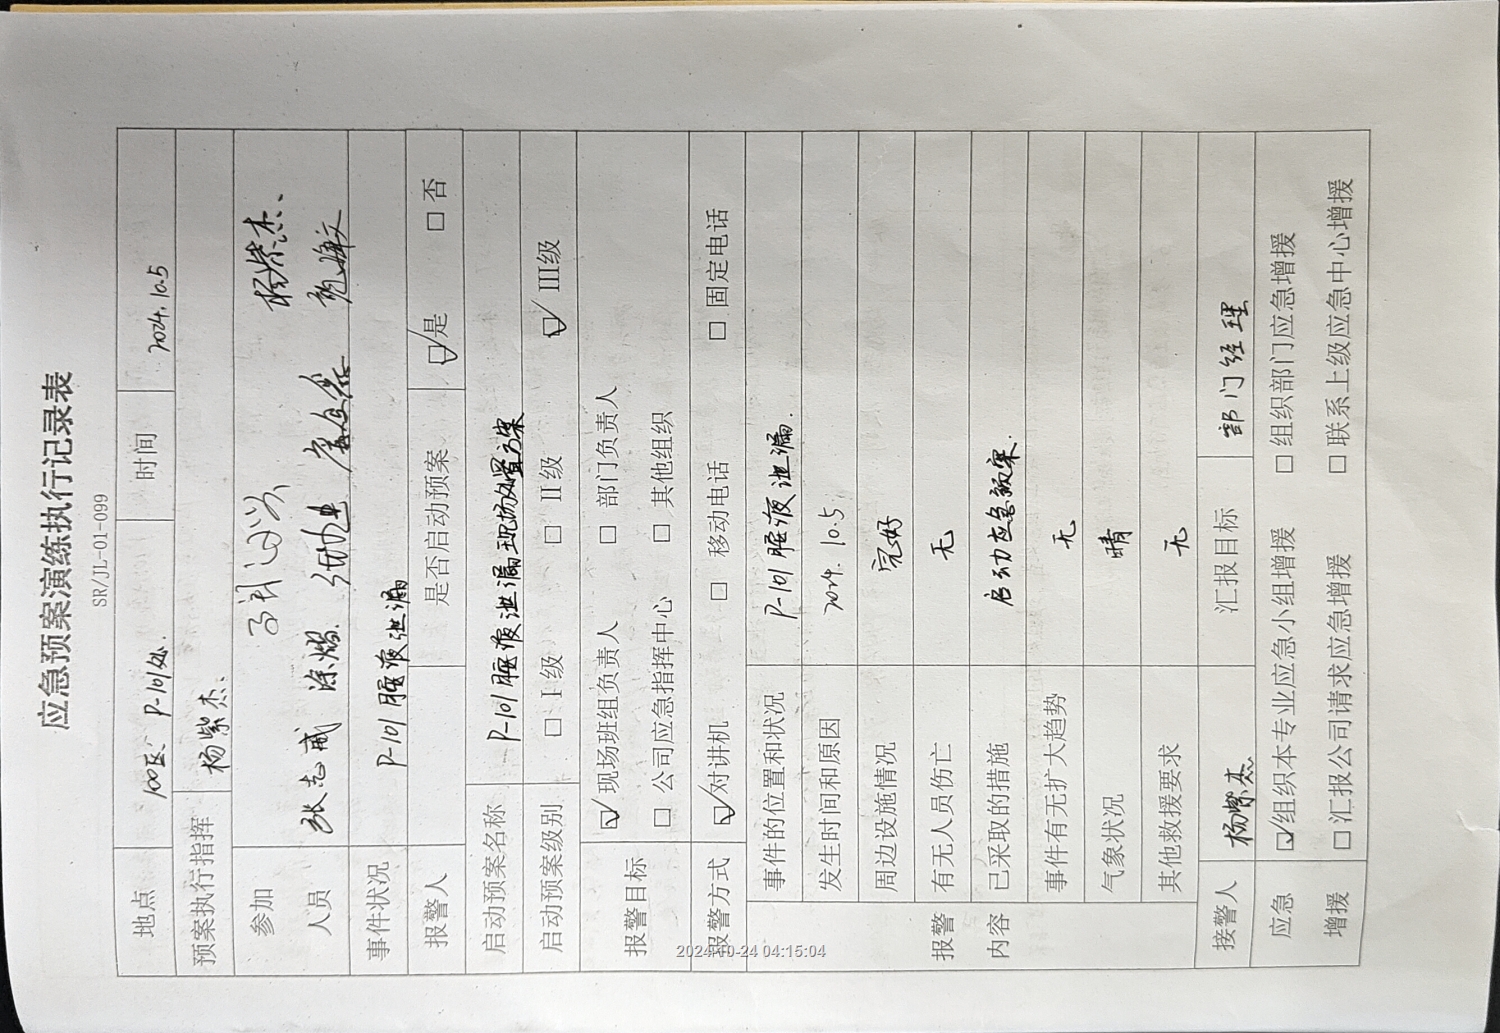 应急预案演练执行记录表
SR/JL-01-099
地点 100区 P-101处. 时间 2024.10.5
预案执行指挥 杨紫杰
参加 杨紫杰、
人员 张志武 涂熠
事件状况 P-101 胺液泄漏
报警人 是否启动预案 ☑是 □否
启动预案名称 P-101胺液泄漏现场处置方案
启动预案级别 □ I级 □ II级 ☑ III级
报警目标 ☑ 现场班组负责人 □ 部门负责人
□ 公司应急指挥中心 □ 其他组织
报警方式 ☑ 对讲机 □ 移动电话 □ 固定电话
报警
内容
事件的位置和状况 P-101 胺液泄漏.
发生时间和原因 2024.10.5
周边设施情况 完好
有无人员伤亡 无
已采取的措施 启动应急预案.
事件有无扩大趋势 无
气象状况 晴
其他救援要求 无
接警人 杨紫杰 汇报目标 部门经理
应急 ☑组织本专业应急小组增援 □ 组织部门应急增援
增援 □ 汇报公司请求应急增援 □ 联系上级应急中心增援
2024-10-24 04:15:04